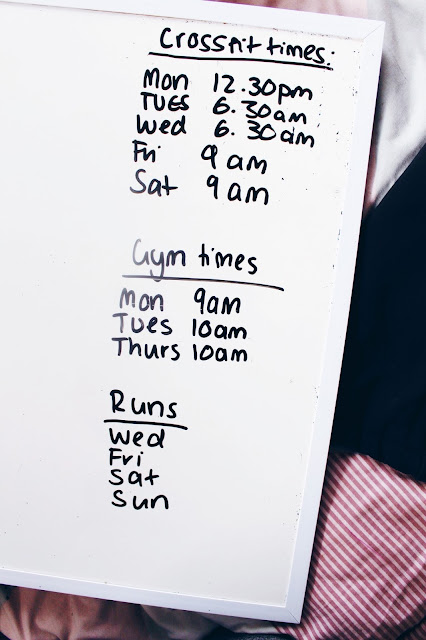 Crossfit times:
Mon 12.30pm
TUES 6.30am
Wed 6.30am
Fri 9am
Sat 9am
Gym times
Mon 9am
Tues 10am
Thurs 10am
Runs
Wed
Fri
Sat
Sun